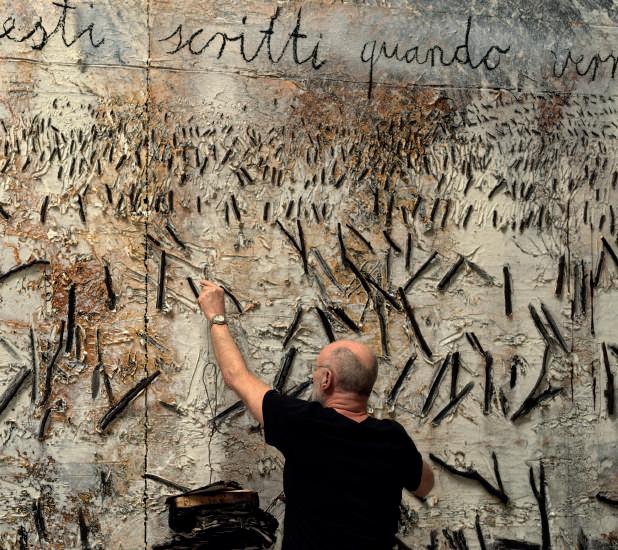 esti scritti quando verr